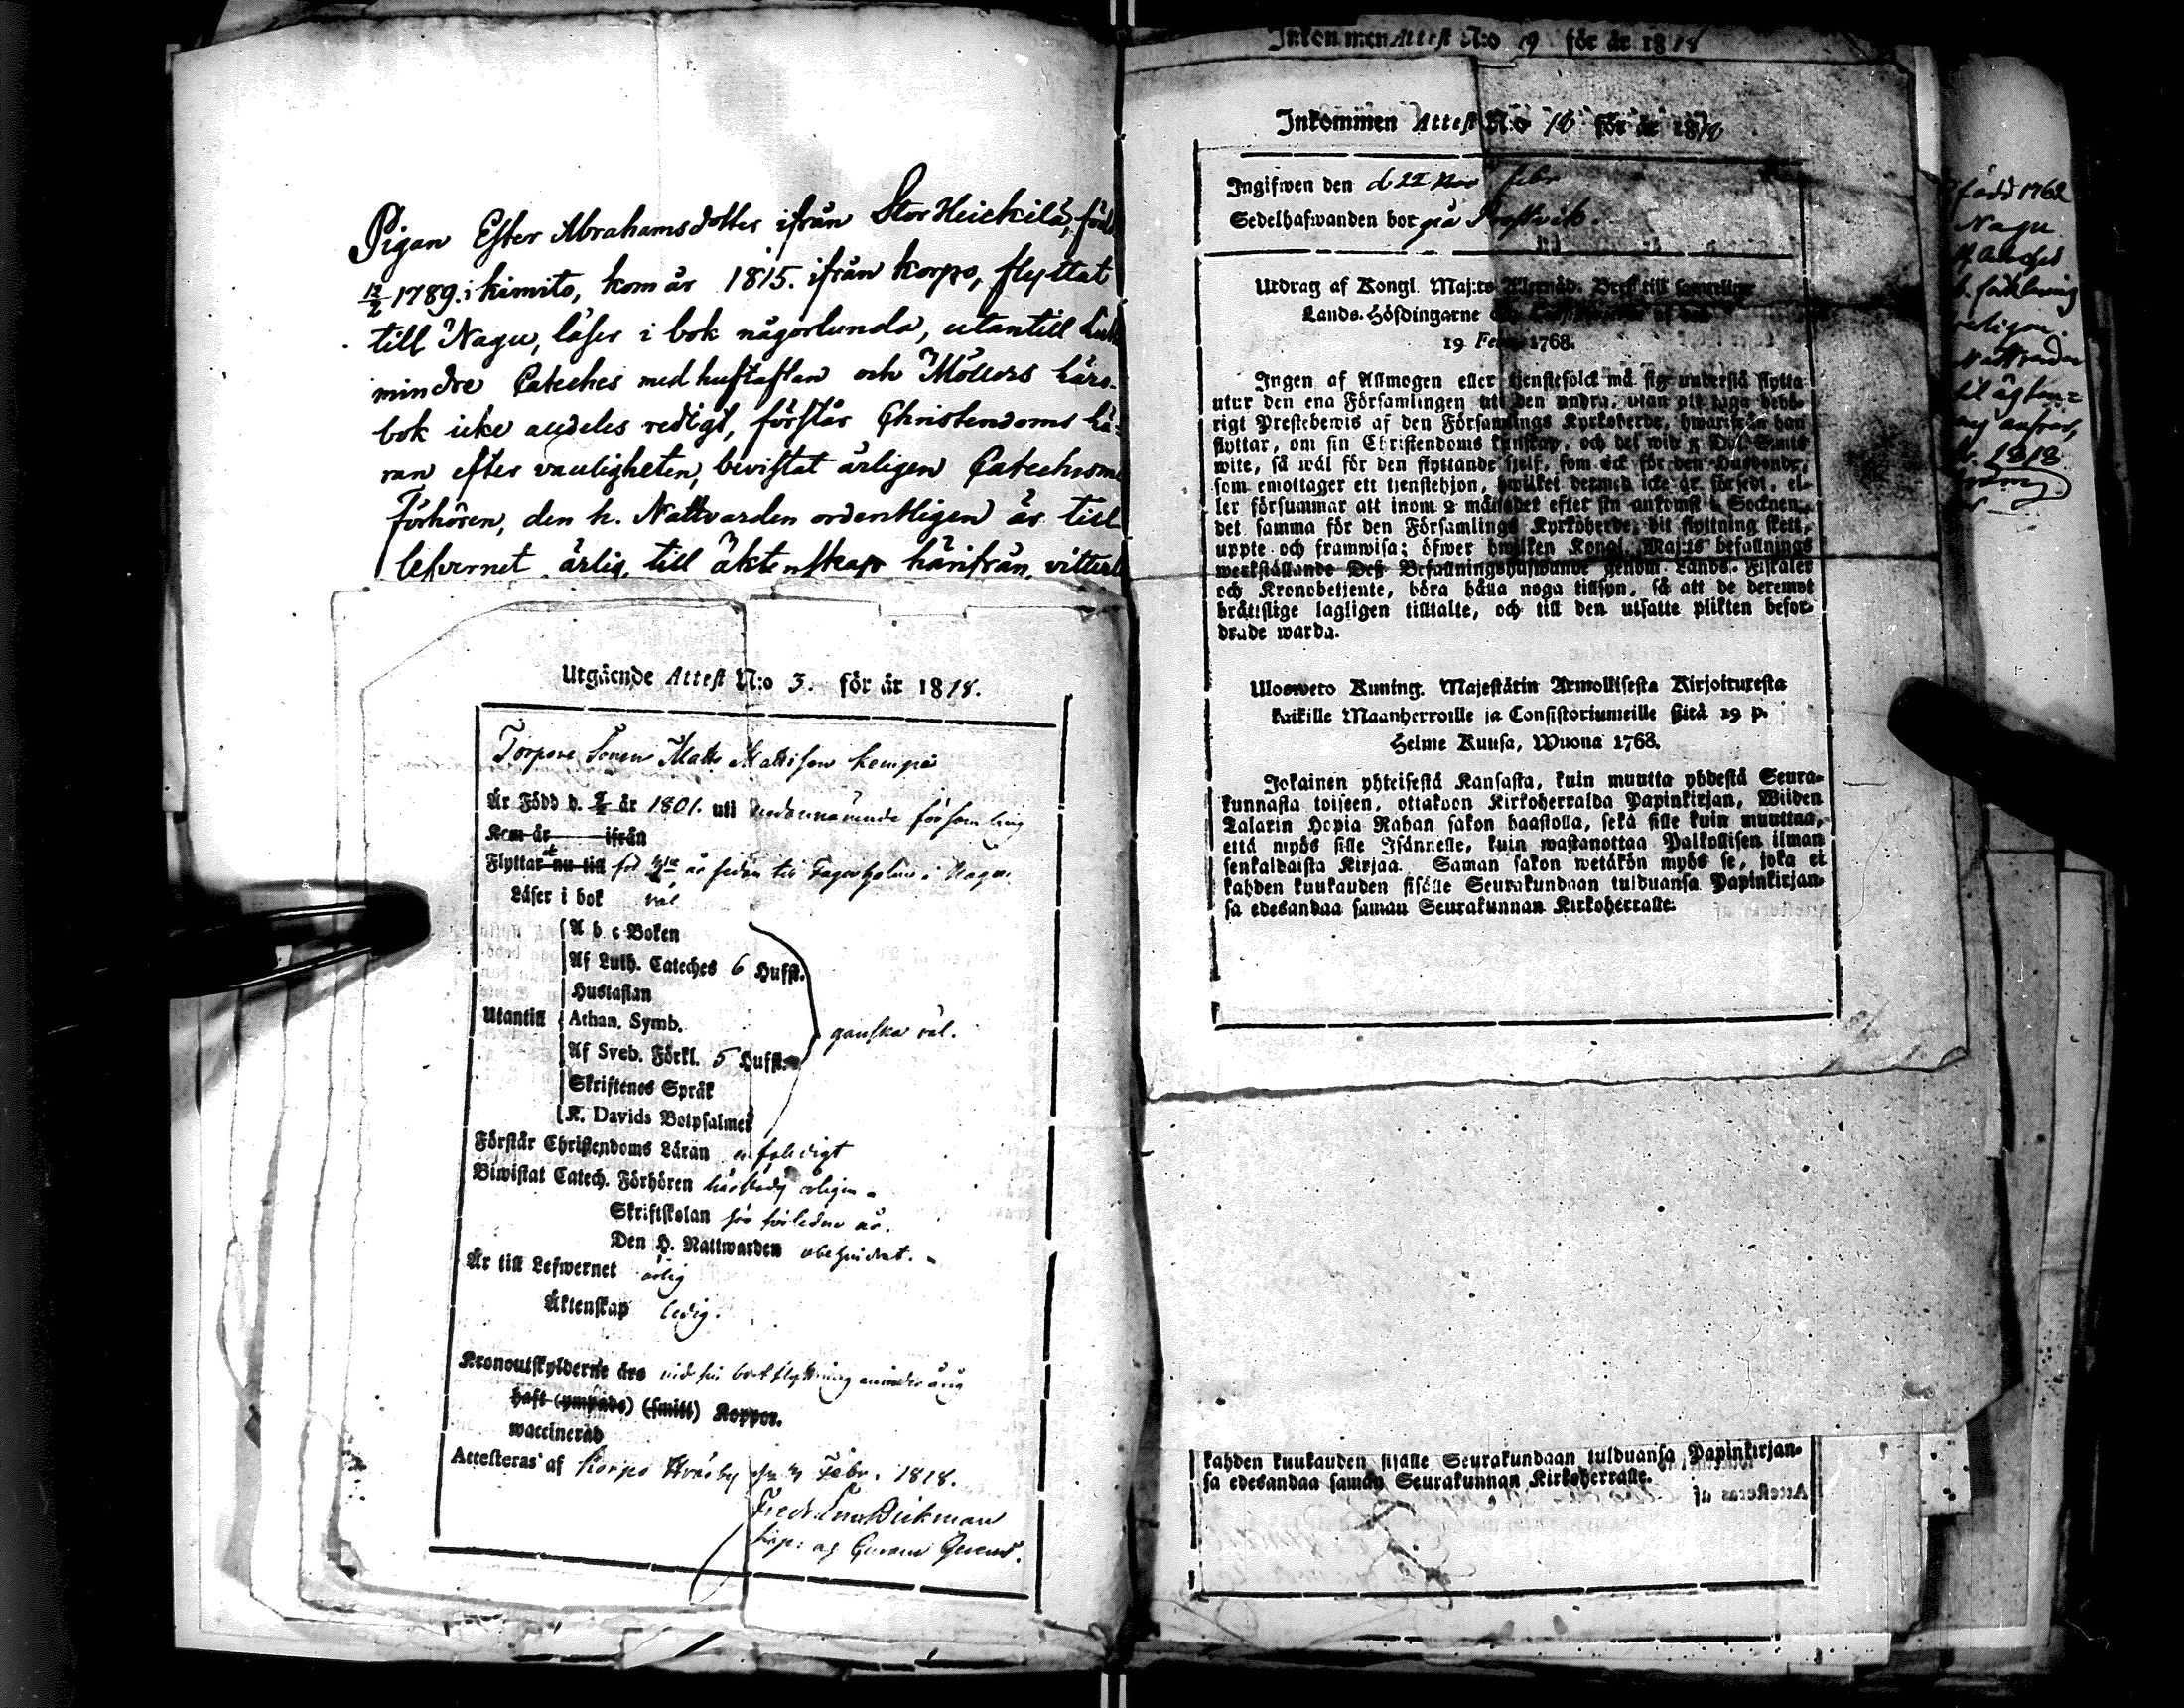 Pigan Ester Abrahamsdotter ifrån Stor Heickilä, född
12/2 1789. i kimito, kom år 1815. ifrån korpo, flyttat
till Nagu, läser i bok någorlunda, utantill Luth
mindre Cateches med hustaflan och Möllers läro-
bok icke aldeles redigt, förstår Christendoms lä-
ran efter vanligheten, bevistat årligen Catechism
Förhören, den h. Nattvarden ordentligen är till
lefvernet ärlig, till äktenskap härifrån,
Utgående Attest N:o 3. för år 1818.
Torpare Sonen Matts Mattsson kempe
År Född d. år 1801. uti församling
Kom år ifrån
Flyttar nu till år sedan till Fagerholm i Nagu
Läser i bok väl
A b c Boken
Af Luth. Cateches 6 Hufst.
Hustaflan
Utantill
Athan. Symb.
Af Sveb. Förkl. 5 Hufst.
ganska väl.
Skriftenes Språk
K. Davids Botpsalmer
Förstår Christendoms Läran
Biwistat Catech. Förhören årligen
Skriftskolan förledne år.
Den H. Nattwarden obehindrat.
Är till Lefwernet ärlig
Äktenskap ledig.
Kronoutskylderne års vid sin bortflyttning minderårig
haft (ympade) (smitt) Koppor.
waccinerad
Attesteras af Korpo Febr. 1818.
Inkommen Attest N:o 19 för år 1818
Inkommen Attest N:o 18 för år 1818
Ingifwen den d 22 Febr
Sedelhafwanden bor på
Utdrag af Kongl. Maj:ts Allernåd. Bref till samtelige
Lands-Höfdingarne
19 Febr. 1768.
Ingen af Allmogen eller tjenstefolck må sig understå flytta
utur den ena Församlingen uti den andra, utan att taga behö-
rigt Prestebewis af den Församlings Kyrkoherde, hwarifrån han
flyttar, om sin Christendoms kunskap, och det wid 5 Dal. S:mts
wite, så wäl för den flyttande sjelf, som ock för den Husbonde,
som emottager ett tjenstehjon, hwilket dermed icke är försedt, el-
ler försummar att inom 2 månader efter sin ankomst i Socknen,
det samma för den Församlings Kyrkoherde, dit flyttning skett,
uppte och framwisa; öfwer hwilken Kongl. Maj:ts befallnings
werkställande Deß Befallningshafwande genom Lands-Fiskaler
och Kronobetjente, böra hålla noga tillsyn, så att de deremot
bråttslige lagligen tilltalte, och till den utsatte plikten befor-
drade warda.
Ulosweto Kuning. Majestätin Armollisesta Kirjoituresta
kaikille Maanherroille ja Consistoriumeille siitä 19 p.
Helme Kuusa, Wuona 1768.
Jokainen yhteisestä Kansasta, kuin muutta yhdestä Seura-
kunnasta toiseen, ottakoon Kirkoherralda Papinkirjan, Wiiden
Talarin Hopia Rahan sakon haastolla, sekä sille kuin muuttaa,
että myös sille Isännelle, kuin wastanottaa Palkollisen ilman
senkaldaista Kirjaa. Saman sakon wetäkön myös se, joka ei
kahden kuukauden sisälle Seurakundaan tulduansa Papinkirjan-
sa edesandaa saman Seurakunnan Kirkoherralle.
kahden kuukauden sisälle Seurakundaan tulduansa Papinkirjan-
sa edesandaa saman Seurakunnan Kirkoherralle.
Attesteras af
född 1762
Nagu
1818